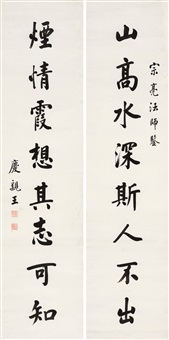 宗亮法師鑒
山高水深斯人不出
煙情霞想其志可知
慶親王